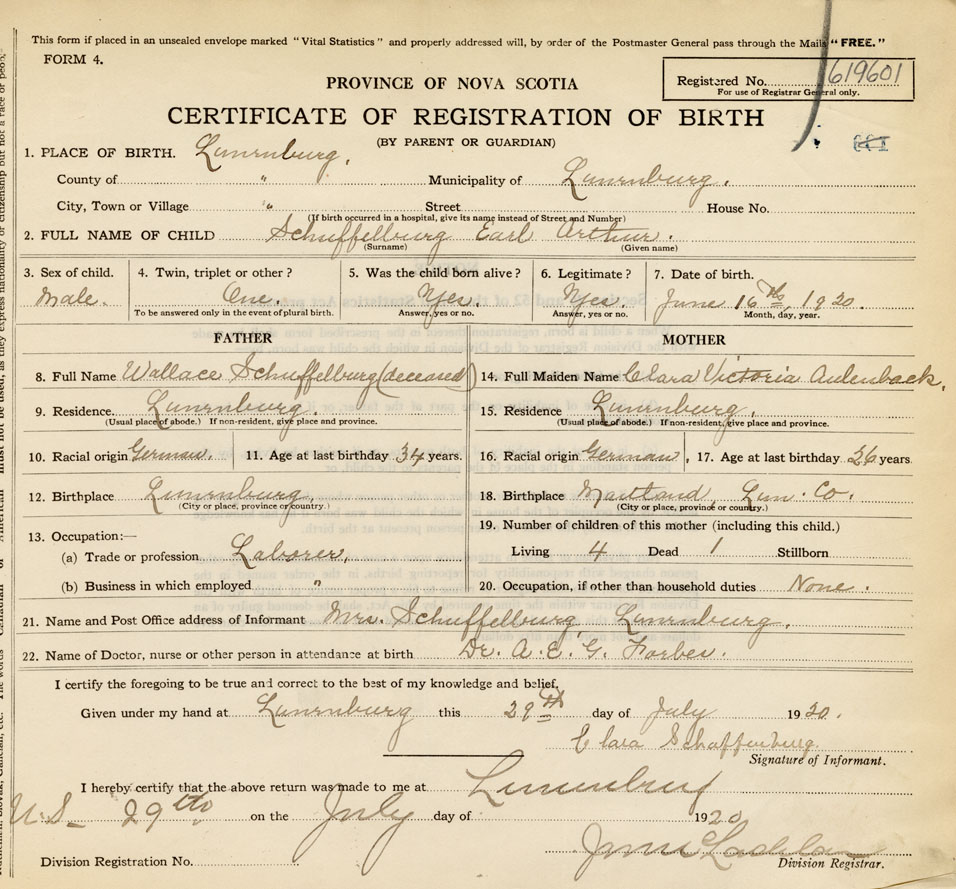 This form if placed in an unsealed envelope marked "Vital Statistics" and properly addressed will, by order of the Postmaster General pass through the Mails "FREE."
FORM 4.
Registered No. 619601
For use of Registrar General only.
PROVINCE OF NOVA SCOTIA
CERTIFICATE OF REGISTRATION OF BIRTH
(BY PARENT OR GUARDIAN)
1. PLACE OF BIRTH. Lunenburg.
County of " Municipality of Lunenburg.
City, Town or Village " Street House No.
(If birth occurred in a hospital, give its name instead of Street and Number)
2. FULL NAME OF CHILD Schuffelburg Earl Arthur.
(Surname) (Given name)
3. Sex of child. 4. Twin, triplet or other? 5. Was the child born alive? 6. Legitimate? 7. Date of birth.
Male. One. Yes. Yes. June 16th, 1920.
To be answered only in the event of plural birth. Answer, yes or no. Answer, yes or no. Month, day, year.
FATHER MOTHER
8. Full Name Wallace Schuffelburg (deceased) 14. Full Maiden Name Clara Victoria Aulenback.
9. Residence. Lunenburg. 15. Residence Lunenburg.
(Usual place of abode.) If non-resident, give place and province. (Usual place of abode.) If non-resident, give place and province.
10. Racial origin German. 11. Age at last birthday 34 years. 16. Racial origin German, 17. Age at last birthday 26 years.
12. Birthplace Lunenburg, 18. Birthplace Maitland, Lun. Co.
(City or place, province or country.) (City or place, province or country.)
13. Occupation:— 19. Number of children of this mother (including this child.)
(a) Trade or profession Laborer, Living 4 Dead 1 Stillborn
(b) Business in which employed " 20. Occupation, if other than household duties None.
21. Name and Post Office address of Informant Mrs. Schuffelburg, Lunenburg.
22. Name of Doctor, nurse or other person in attendance at birth Dr. A. E. G. Forbes.
I certify the foregoing to be true and correct to the best of my knowledge and belief.
Given under my hand at Lunenburg this 29th day of July 1920.
Clara Schaffenburg.
Signature of Informant.
I hereby certify that the above return was made to me at Lunenburg
N.S. 29th on the July day of 1920
Division Registration No. Division Registrar.